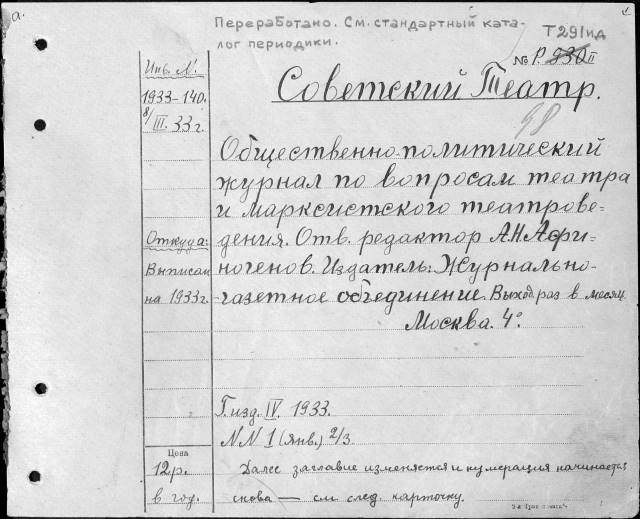 а.
Переработано. См. стандартный ката-
лог периодики.
Т291ид
№ Р. 930 II
Инв. №.
1933-140.
8/III. 33 г.
Советский Театр.
98
Общественно-политический
журнал по вопросам театра
и марксистского театрове-
дения. Отв. редактор А.Н. Афи-
ногенов. Издатель: Журнально-
газетное объединение. Выход. раз в месяц
Москва. 4°.
Откуда:
Выписан
на 1933 г.
Г. изд. IV. 1933.
NN 1 (янв.) 2/3.
Цена
12 р.
в год.
Далее заглавие изменяется и нумерация начинается
снова — см. след. карточку.